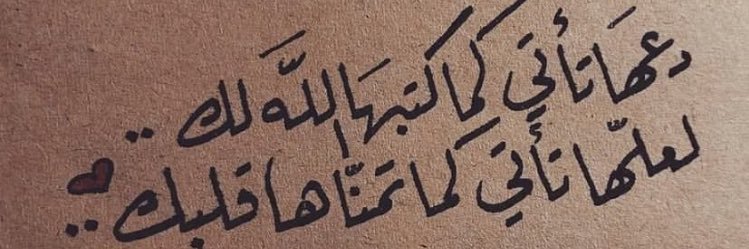 دعهَا تأتي كما كتبهَا اللَّه لك ..
لعلّها تأتي كما تمنّاها قلبك ..